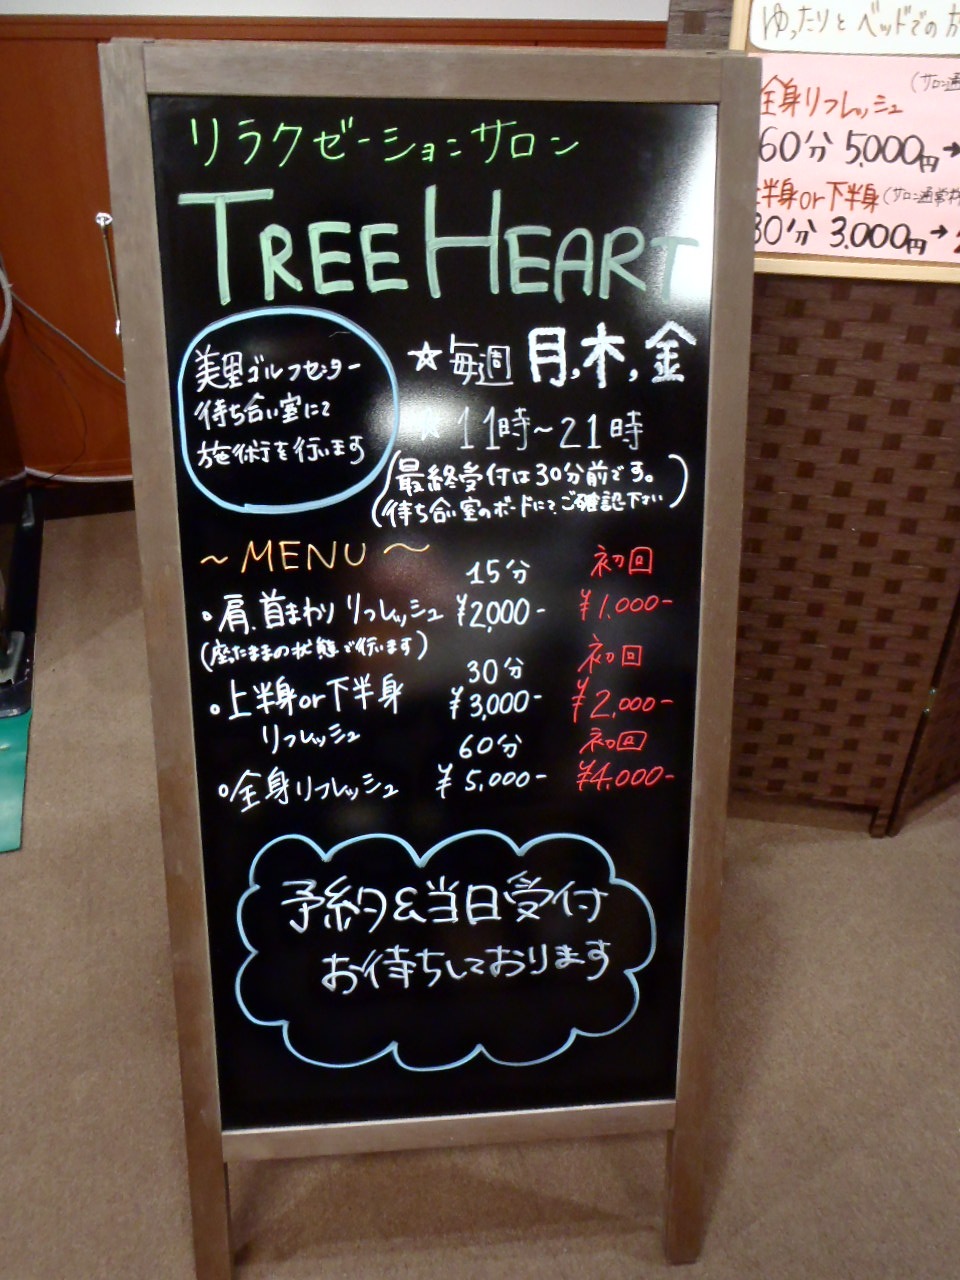 リラクゼーションサロン
TREE HEART
美里ゴルフセンター
待ち合い室にて
施術を行います
☆毎週 月,木,金
☆11時~21時
(最終受付は30分前です。
待ち合い室のボードにてご確認下さい)
~MENU~
15分 初回
・肩、首まわり リフレッシュ ¥2,000- ¥1,000-
(座ったままの状態で行います)
30分 初回
・上半身or下半身 ¥3,000- ¥2,000-
リフレッシュ
60分 初回
・全身リフレッシュ ¥5,000- ¥4,000-
予約&当日受付
お待ちしております
ゆったりとベッドでの
(サロン通
全身リフレッシュ
60分 5,000円→
上半身or下半身(サロン通常
30分 3,000円→